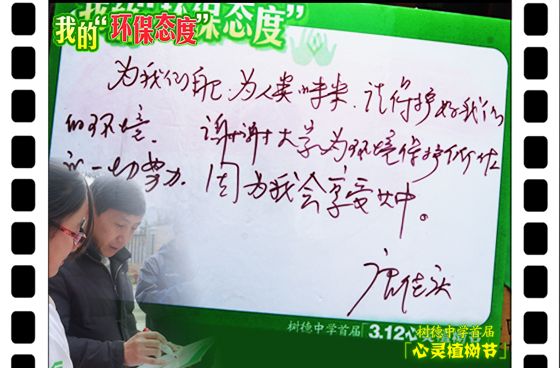 我的“环保态度”
我的“环保态度”
为我们自己.为人类的未来.请保护好我们
的环境. 谢谢大家为环境保护所做
的一切努力. 因为我会享受其中。
树德中学首届 3.12心灵植树节
树德中学首届
「心灵植树节」